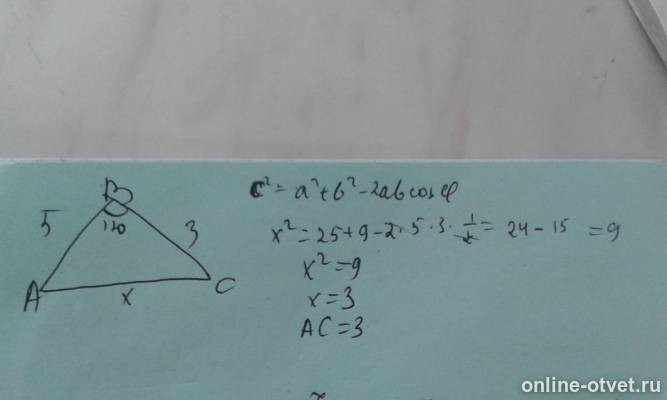 B
5
120
3
A
x
C
c² = a² + b² - 2ab cos φ
x² = 25 + 9 - 2 · 5 · 3 · 1/2 = 24 - 15 = 9
x² = 9
x = 3
AC = 3
online-otvet.ru